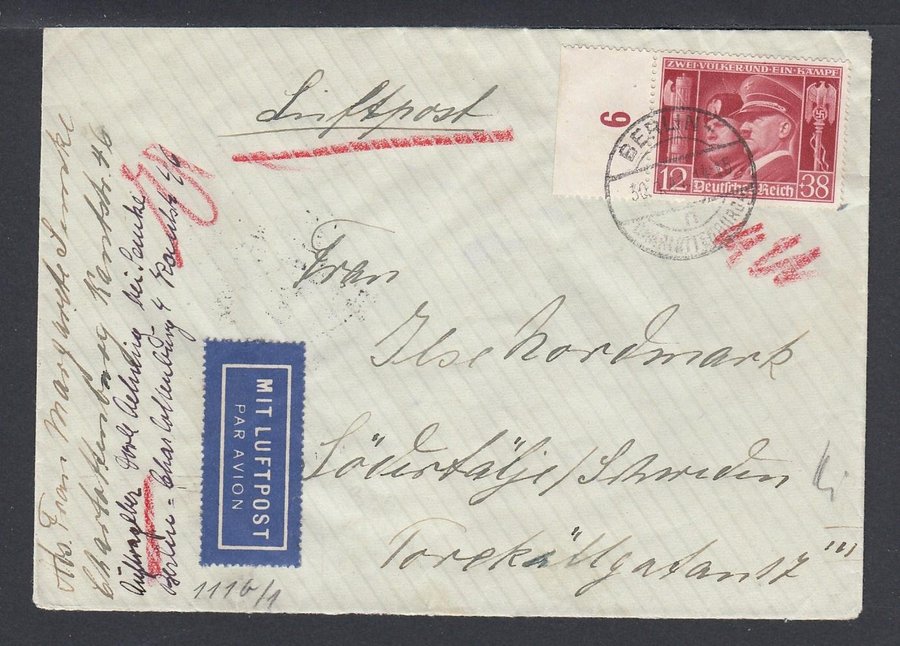 Luftpost
6
ZWEI·VÖLKER·UND·EIN·KAMPF
12 Deutsches Reich 38
BERLIN-
30.
CHARLOTTENBURG
Frau
Ilse Nordmark
Södertälje/Schweden
Torekällgatan 17 III
MIT LUFTPOST
PAR AVION
Abs. Frau Margarete
Charlottenburg Kantstr. 46
bei
Berlin-Charlottenburg 4 Kantstr 46
1116/1